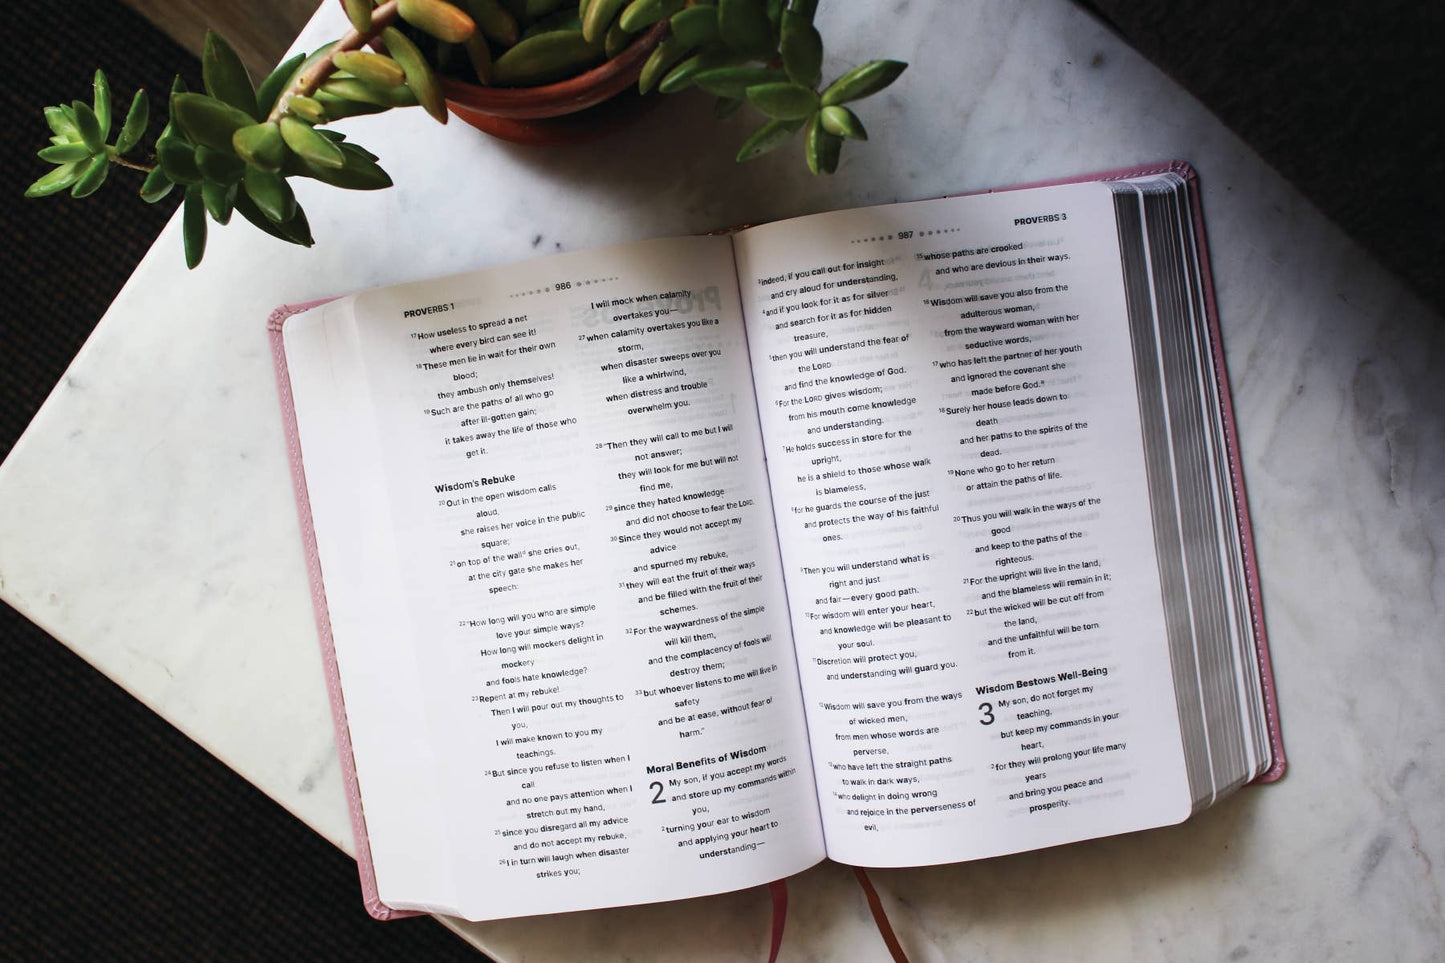 PROVERBS 1
986
17 How useless to spread a net
where every bird can see it!
18 These men lie in wait for their own
blood;
they ambush only themselves!
19 Such are the paths of all who go
after ill-gotten gain;
it takes away the life of those who
get it.
Wisdom's Rebuke
20 Out in the open wisdom calls
aloud,
she raises her voice in the public
square;
21 on top of the wall d she cries out,
at the city gate she makes her
speech:
22 "How long will you who are simple
love your simple ways?
How long will mockers delight in
mockery
and fools hate knowledge?
23 Repent at my rebuke!
Then I will pour out my thoughts to
you,
I will make known to you my
teachings.
24 But since you refuse to listen when I
call
and no one pays attention when I
stretch out my hand,
25 since you disregard all my advice
and do not accept my rebuke,
26 I in turn will laugh when disaster
strikes you;
I will mock when calamity
overtakes you—
27 when calamity overtakes you like a
storm,
when disaster sweeps over you
like a whirlwind,
when distress and trouble
overwhelm you.
28 "Then they will call to me but I will
not answer;
they will look for me but will not
find me,
29 since they hated knowledge
and did not choose to fear the LORD.
30 Since they would not accept my
advice
and spurned my rebuke,
31 they will eat the fruit of their ways
and be filled with the fruit of their
schemes.
32 For the waywardness of the simple
will kill them,
and the complacency of fools will
destroy them;
33 but whoever listens to me will live in
safety
and be at ease, without fear of
harm."
Moral Benefits of Wisdom
2 My son, if you accept my words
and store up my commands within
you,
2 turning your ear to wisdom
and applying your heart to
understanding—
987
PROVERBS 3
3 indeed, if you call out for insight
and cry aloud for understanding,
4 and if you look for it as for silver
and search for it as for hidden
treasure,
5 then you will understand the fear of
the LORD
and find the knowledge of God.
6 For the LORD gives wisdom;
from his mouth come knowledge
and understanding.
7 He holds success in store for the
upright,
he is a shield to those whose walk
is blameless,
8 for he guards the course of the just
and protects the way of his faithful
ones.
9 Then you will understand what is
right and just
and fair—every good path.
10 For wisdom will enter your heart,
and knowledge will be pleasant to
your soul.
11 Discretion will protect you,
and understanding will guard you.
12 Wisdom will save you from the ways
of wicked men,
from men whose words are
perverse,
13 who have left the straight paths
to walk in dark ways,
14 who delight in doing wrong
and rejoice in the perverseness of
evil,
15 whose paths are crooked
and who are devious in their ways.
16 Wisdom will save you also from the
adulterous woman,
from the wayward woman with her
seductive words,
17 who has left the partner of her youth
and ignored the covenant she
made before God. a
18 Surely her house leads down to
death
and her paths to the spirits of the
dead.
19 None who go to her return
or attain the paths of life.
20 Thus you will walk in the ways of the
good
and keep to the paths of the
righteous.
21 For the upright will live in the land,
and the blameless will remain in it;
22 but the wicked will be cut off from
the land,
and the unfaithful will be torn
from it.
Wisdom Bestows Well-Being
3 My son, do not forget my
teaching,
but keep my commands in your
heart,
2 for they will prolong your life many
years
and bring you peace and
prosperity.